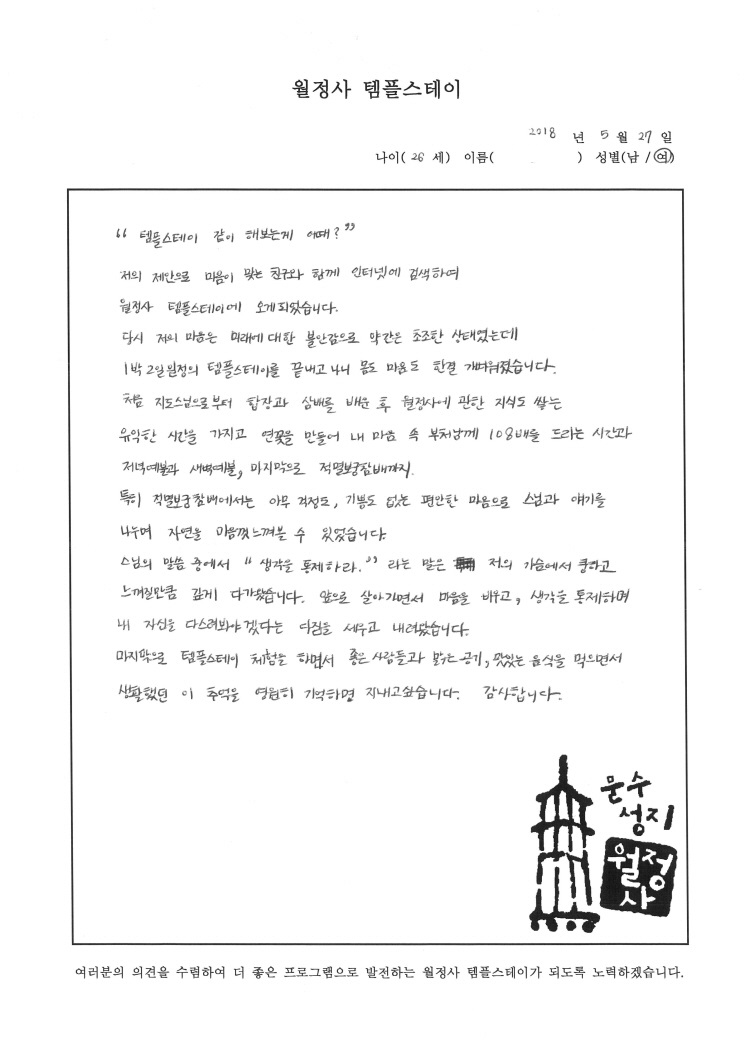 월정사 템플스테이
2018 년 5 월 27 일
나이( 26 세) 이름( ) 성별(남 / 여)
“ 템플스테이 같이 해보는게 어때? ”
저의 제안으로 마음이 맞는 친구와 함께 인터넷에 검색하여
월정사 템플스테이에 오게되었습니다.
다시 저의 마음은 미래에 대한 불안감으로 약간은 초조한 상태였는데
1박 2일 일정의 템플스테이를 끝내고 나니 몸도 마음도 한결 개벼워졌습니다.
처음 지도스님으로부터 합장과 삼배를 배운 후 월정사에 관한 지식도 쌓는
유익한 시간을 가지고 연꽃을 만들어 내 마음 속 부처님께 108배를 드리는 시간과
저녁예불과 새벽예불, 마지막으로 적멸보궁참배까지.
특히 적멸보궁참배에서는 아무 걱정도, 기쁨도 없는 편안한 마음으로 스님과 얘기를
나누며 자연을 마음껏 느껴볼 수 있었습니다.
스님의 말씀 중에서 “ 생각을 통제하라. ” 라는 말은 저의 가슴에서 쿵하고
느껴질만큼 깊게 다가왔습니다. 앞으로 살아가면서 마음을 비우고, 생각을 통제하며
내 자신을 다스려봐야겠다는 다짐을 세우고 내려왔습니다.
마지막으로 템플스테이 체험을 하면서 좋은 사람들과 맑은 공기, 맛있는 음식을 먹으면서
생활했던 이 추억을 영원히 기억하며 지내고싶습니다. 감사합니다.
문수
성지
월정
사
여러분의 의견을 수렴하여 더 좋은 프로그램으로 발전하는 월정사 템플스테이가 되도록 노력하겠습니다.